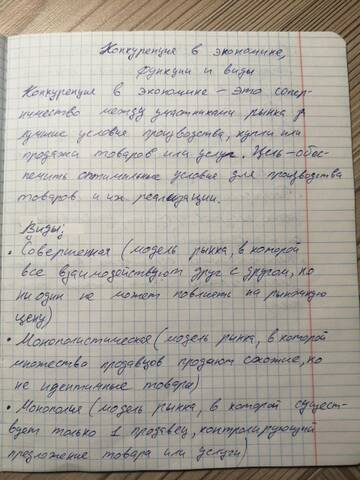 Конкуренция в экономике,
функции и виды
Конкуренция в экономике – это сопер-
ничество между участниками рынка
лучшие условия производства, купли или
продажи товаров или услуг. Цель – обес-
печить оптимальные условия для производства
товаров и их реализации.
Виды:
• Совершенная (модель рынка, в которой
все взаимодействуют друг с другом, но
ни один не может повлиять на рыночную
цену)
• Монополистическая (модель рынка, в которой
множество продавцов продают схожие, но
не идентичные товары)
• Монополия (модель рынка, в которой сущест-
вует только 1 продавец, контролирующий
предложение товара или услуги)